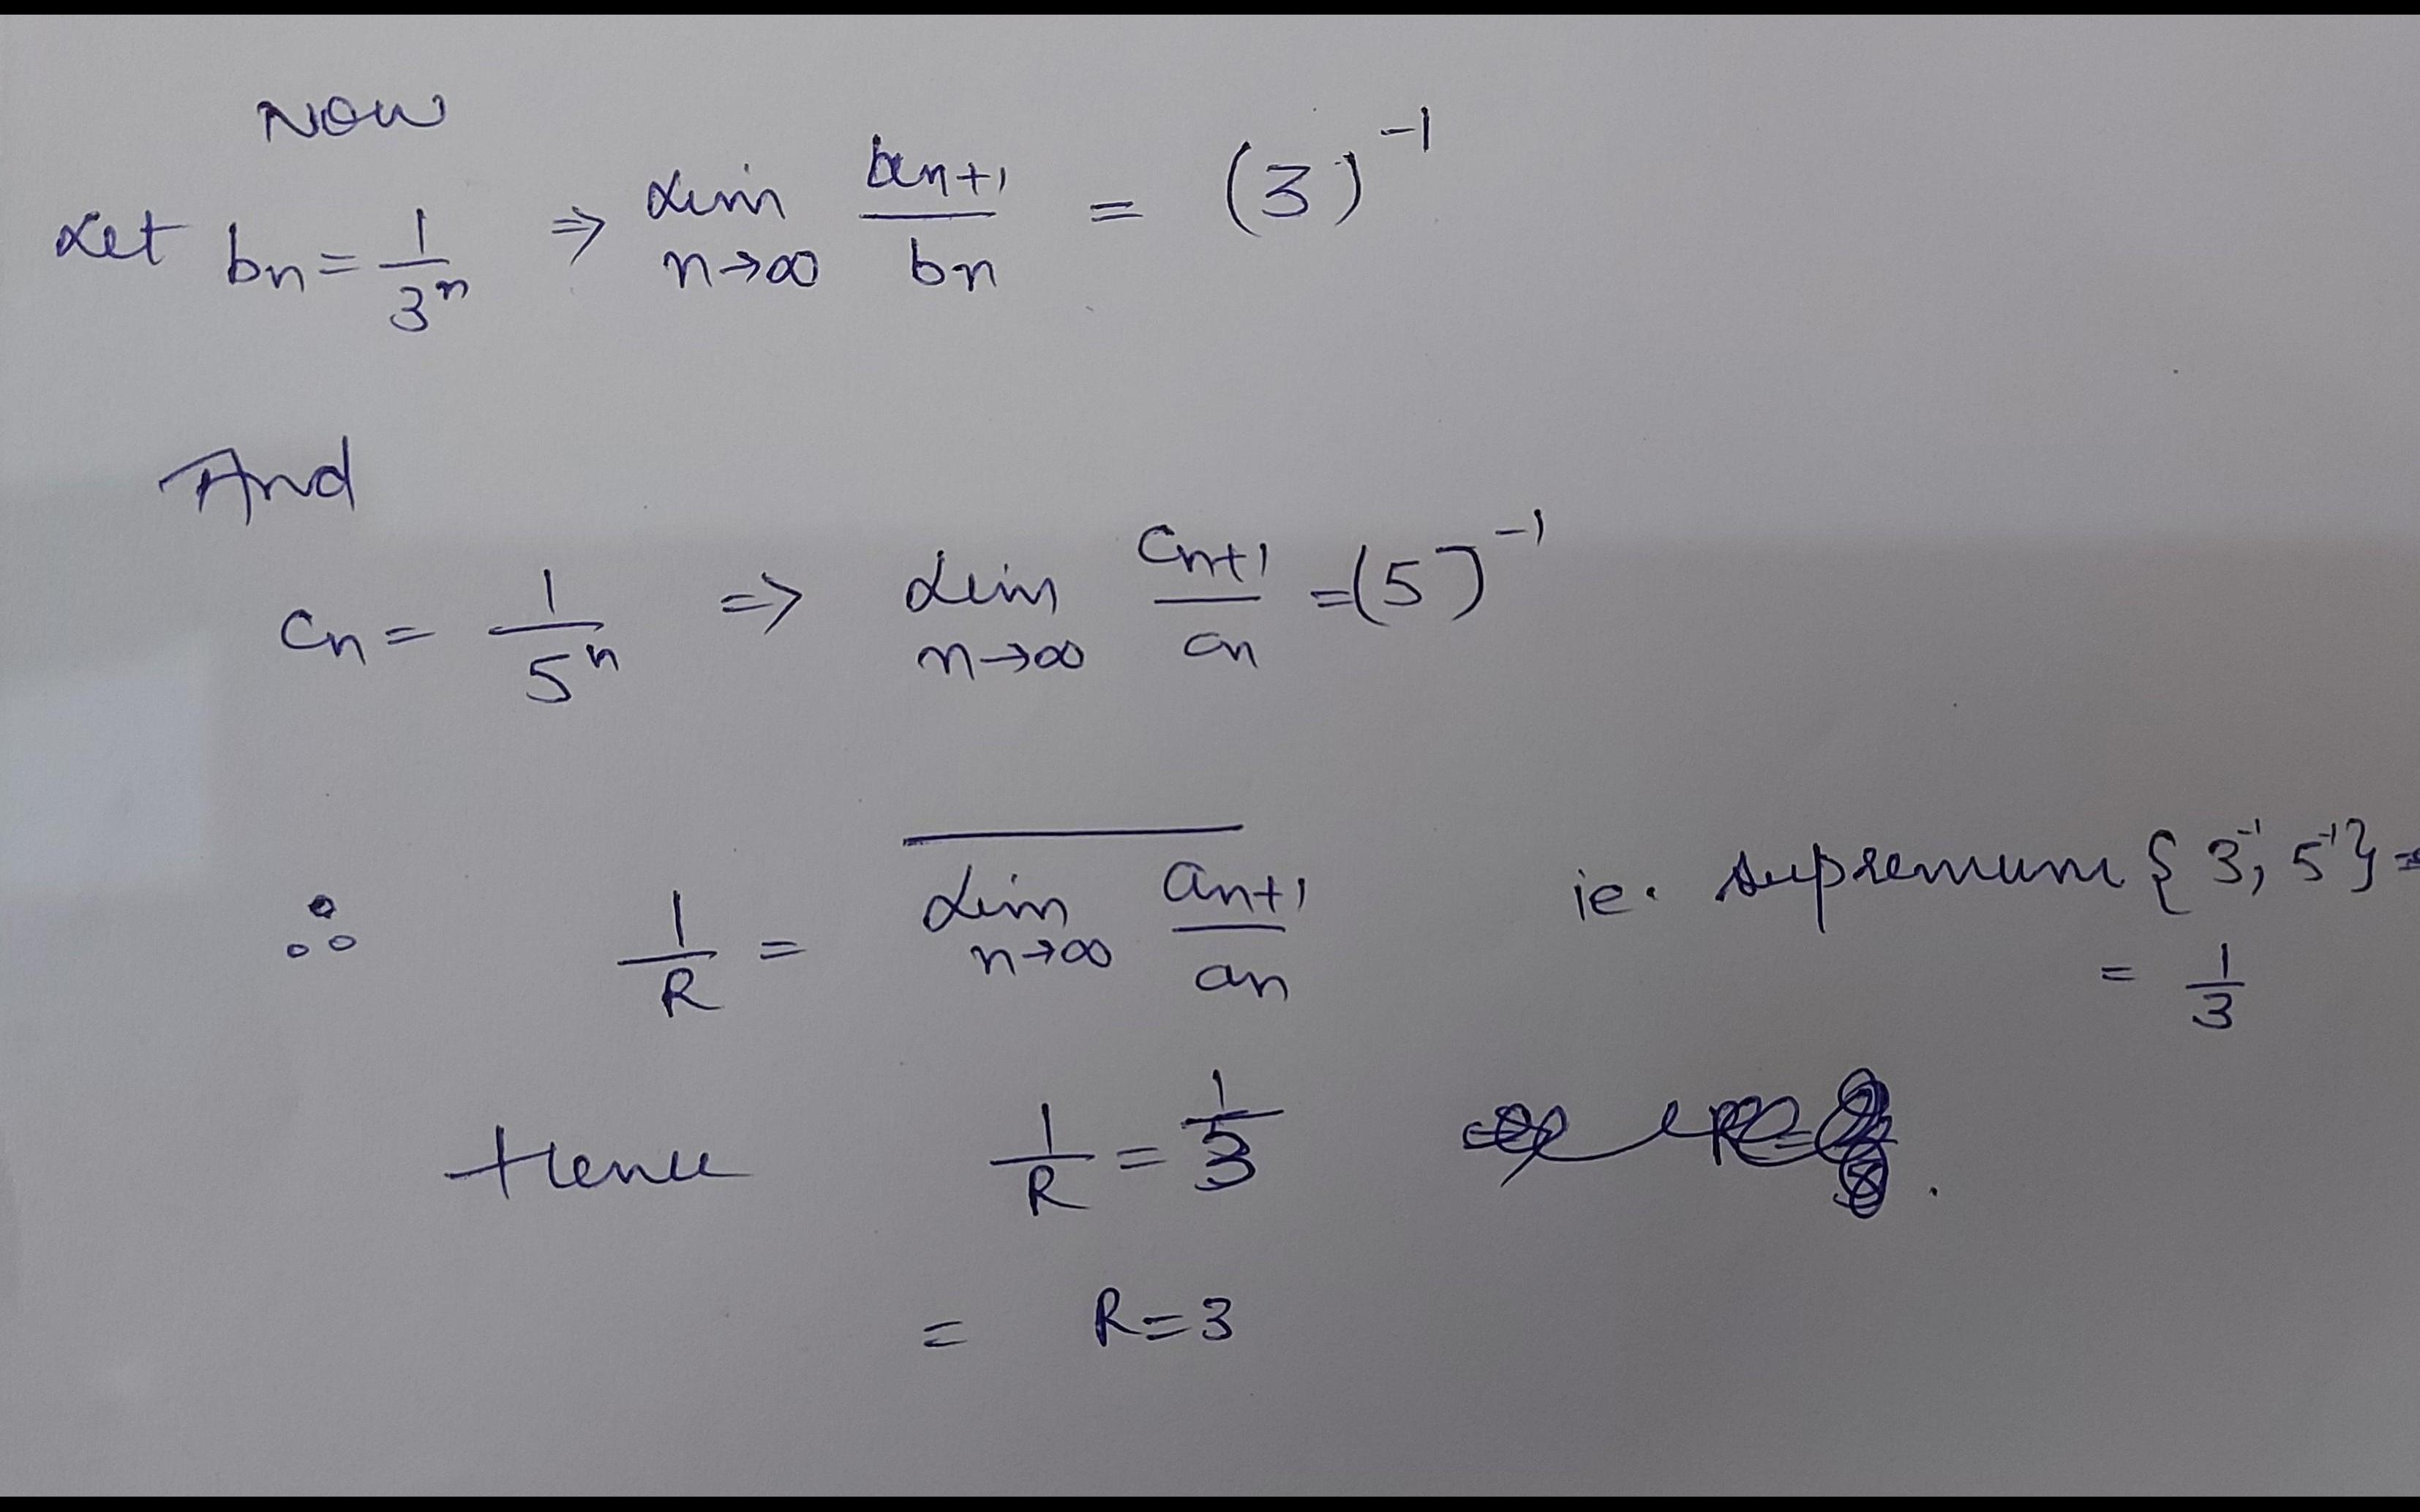 Now
Let bn = 1/3^n ⇒ Lim n→∞ bn+1/bn = (3)^-1
And
Cn = 1/5^n ⇒ Lim n→∞ Cn+1/Cn = (5)^-1
∴ 1/R = \overline{Lim} n→∞ an+1/an ie. supremum {3^-1, 5^-1} =
= 1/3
Hence 1/R = 1/3
= R = 3